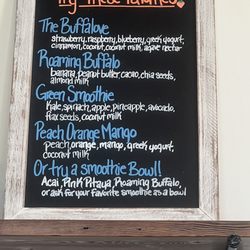 Try These Yummies
The Buffalove
strawberry, raspberry, blueberry, greek yogurt,
cinnamon, coconut, coconut milk, agave nectar
Roaming Buffalo
banana, peanut butter, cacao, chia seeds,
almond milk
Green Smoothie
Kale, spinach, apple, pineapple, avocado,
flax seeds, coconut milk
Peach Orange Mango
peach, orange, mango, greek yogurt,
coconut milk
Or try a smoothie Bowl!
Acai, Pink Pitaya, Roaming Buffalo,
or ask for your favorite smoothie as a bowl